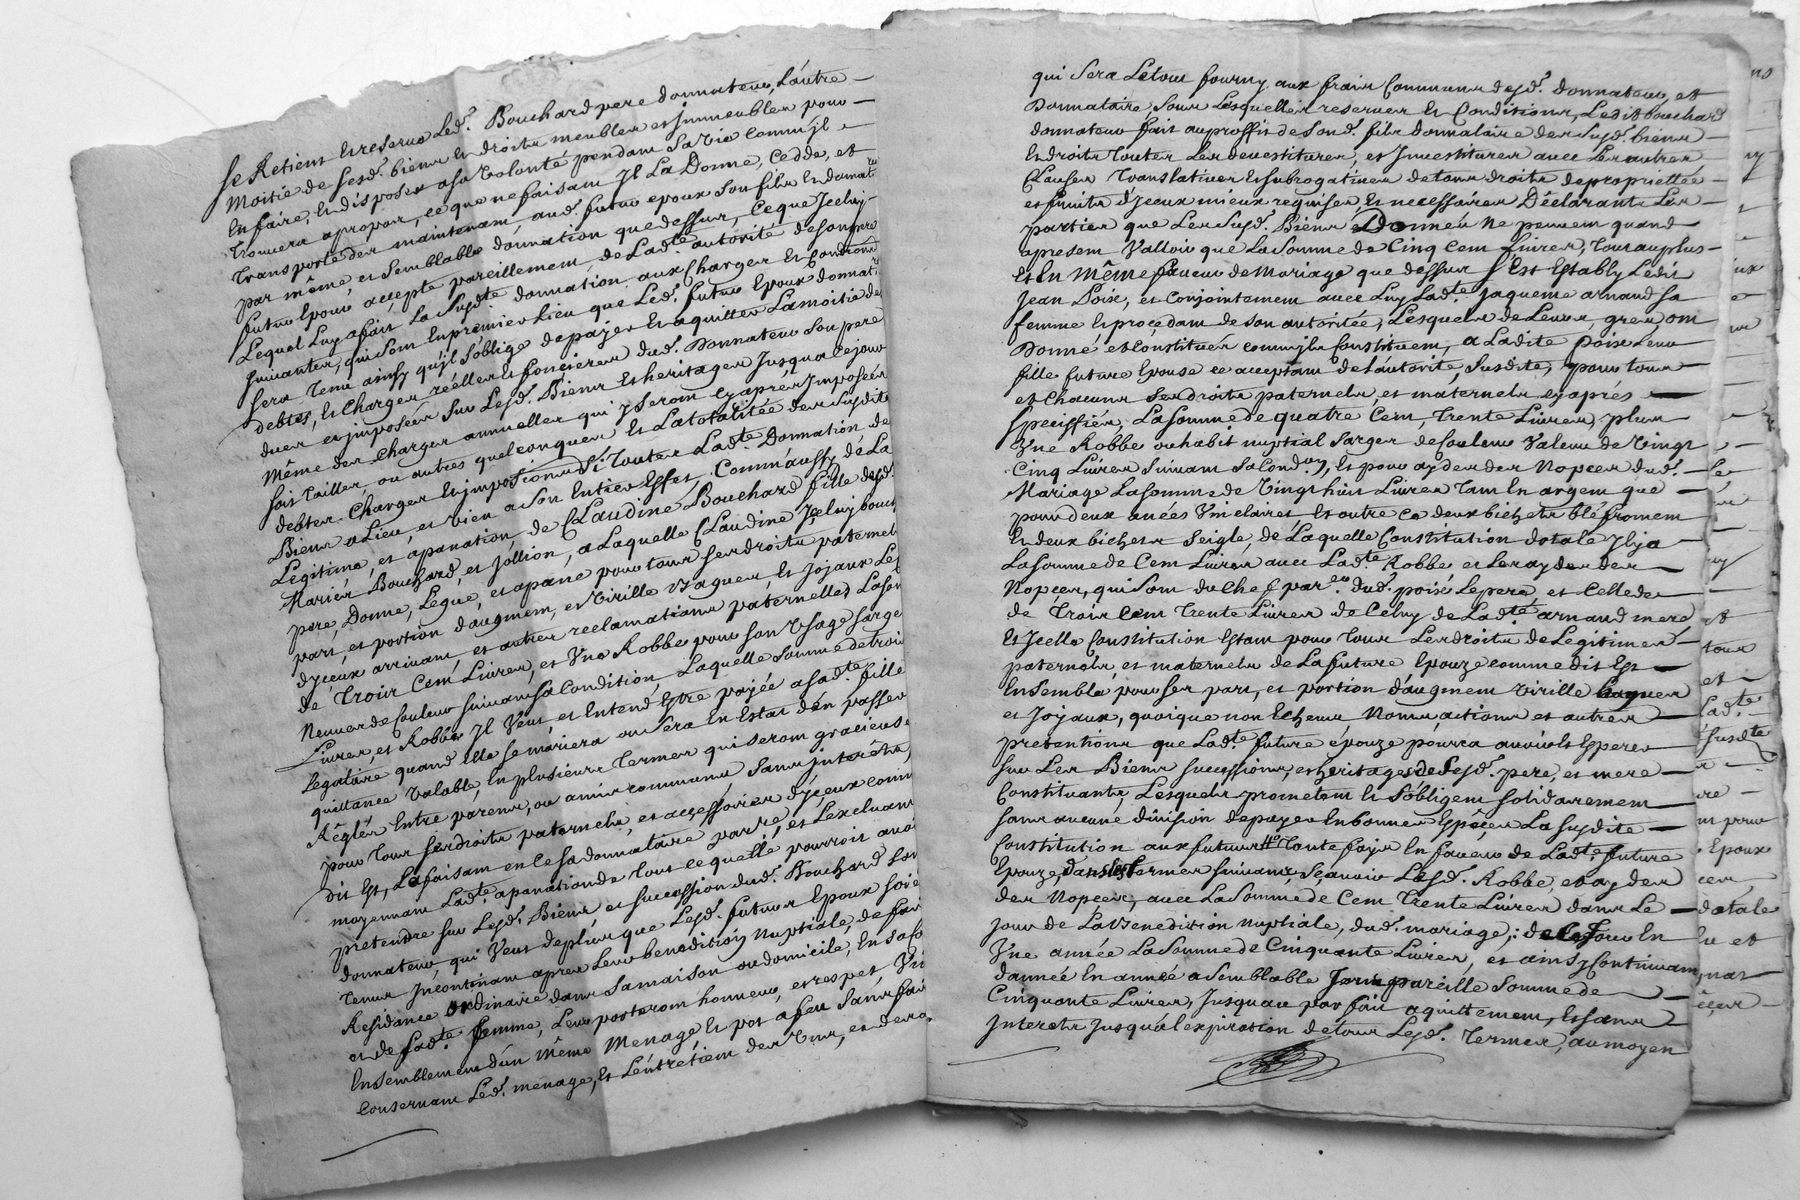 Se Retient et reserve Led.t Bouchard pere donnateur, L'autre
Moitié de sesd.t biens et droits meubles et immeubles pour
En faire, et disposer a sa volonté pendant sa vie comm'jl
trouvera apropos, ce que ne faisant Jl La Donne, Cedde, et
transporte des maintenant, aud.t futur epoux son fils et donnat.re
par même et semblable donnation que dessus, Ce que Jceluy
futur Epoux accepte pareillement de Lad.te autorité de son pere
Lequel Luy a fait La susd.te donnation aux Charges et Conditions
suivantes, qui sont En premier Lieu que Led.t futur Epoux donnat.re
sera tenu ainsy qu'jl s'oblige de payer et aquitter La moitié des
debtes, et Charges réelles et foncieres dud.t Donnateur son pere
dues et imposées sur Lesd.t Biens et heritages Jusqu'a ce jour
Même des charges annuelles qui y seront cy après Imposées
soit tailles, ou autres quelconques et La totalitée des susdits
debtes Charges et impositions si toutes Lad.te Donnation de
Biens a Lieu, et vien a son Entier Effet, Comm'aussy de La
Legitime, et apanation de Claudine Bouchard fille desd.t
Mariés Bouchard, et Jollion, a Laquelle Claudine Jceluy bouch
pere, Donne, Legue, et apane pour tous ses droits paternel
part, et portion d'augment, et virille Bagues, et Joyaux Les
d'jceux arrivant, et autres reclamations paternelles La som
de trois Cent Livres, et Vne Robbe pour son Vsage sarge
Neuve de Couleur suivant sa Condition Laquelle somme de trois
Livres, et Robbe Jl Veut et Entend Estre payée a sad.te fille
Legataire quand Elle se mariera ou sera En Estat d'en passer
quittance valable, En plusieurs termes qui seront gracieuse
Réglés Entre parens, ou amis communs sans interêts
pour tous ses droits paternels, et accessoires d'jceux comm
Dit Est, La faisant en Ce sa donnataire par re et L'excluant
moyennant Lad.te apanation de tout ce qu'elle pourroit avoi
pretendre sur Lesd.t Biens et succession dud.t Bouchard son
donnateur, qui Veut de plus que Lesd.t futurs Epoux soie
tenus Jncontinant apres Leur benedition Nuptiale, de fair
Residance ordinaire dans sa maison ou domicile, En sa
et de sad.te femme, Leur porteront honneur, et respet, Vi
Ensemblement d'un même Menage et pot a feu sans fai
Conservant Led.t menage, Et L'entretiem des Vns, et des a
qui sera Letout fourny aux frais Communs desd.t donnateur, et
Donnataire, sous Lesquelles reserves et Conditions, Ledit bouchard
donnateur fait auproffit de sond.t fils donnataire des susd.t biens
et droits toutes Les devestitures, et Jnvestitures avec Les autres
Clauses translatives et subrogatives de tous droits de propriettée
et fruits d'jceux mieux requises, et necessaires Déclarants Les
parties que Les susd.t Biens Donnés Ne peuvent quand
apresent Valloir que La Somme de Cinq Cent Livres, tout auplus
Et En Même faveur de Mariage que dessus s'Est Establly Ledit
Jean Poix, et Conjointement avec Luy Lad.te Jaqueme arnaud sa
femme et procedant de son autoritée, Lesquels de Leurs, gres, ont
Donné et Constitués comm'jls Constituent, a Ladite Poixe Leur
fille future Epouse ce acceptant de L'autorité susdite, pour tous
et Chacuns ses droits paternels, et maternels cy après
speciffiés, La somme de quatre Cent, trente Livres, plus
Vne Robbe ou habit nuptial sarges de couleur Valeur de vingt
Cinq Livres suivant sa Cond.on, et pour ayder des Nopces dud.t
Mariage La somme de vingt huit Livres tant En argent que
pour deux anées Vin claires Et outre Ce deux bichets blé froment
et deux bichets seigle, de Laquelle Constitution dotale Jl y a
La somme de Cent Livres avec Lad.te Robbe et Les ayder des
Nopces, qui sont du Chef pat.el dud.t poixe Le pere, et Celle de
de trois Cent trente Livres de Celuy de Lad.te arnaud mere,
Et Jcelle Constitution Estant pour tous Les droits de Legitimes,
paternels, et maternels de La future Epouze comme dit Est
Ensemble, pour ses part, et portion d'augment virille bagues
et Joyaux, quoique non Echeus, Noms, actions et autres
pretentions que Lad.te future épouze pourra avoir et Esperer
sur Les Biens successions, et heritages desd.t pere, et mere
Constituants, Lesquels promettent et s'obligent solidairement
sans aucune division de payer En bonnes Espéces La susdite
Constitution aux futurs toute fois En faveur de Lad.te future
Epouze, dans Les termes suivans, sçavoir Lesd.t Robbe, et ayder
des Nopces, avec La somme de Cent trente Livres dans Le
jour de La Benediction nuptiale, dud.t mariage; de Ce Jour En
Vne année La somme de Cinquante Livres, et ainsy Continuant
d'année En année a semblable Jour pareille somme de
Cinquante Livres, Jusqu'au parfait aquittement, Et sans
Interets jusqu'a l'expiration de tous Lesd.t termes, au moyen